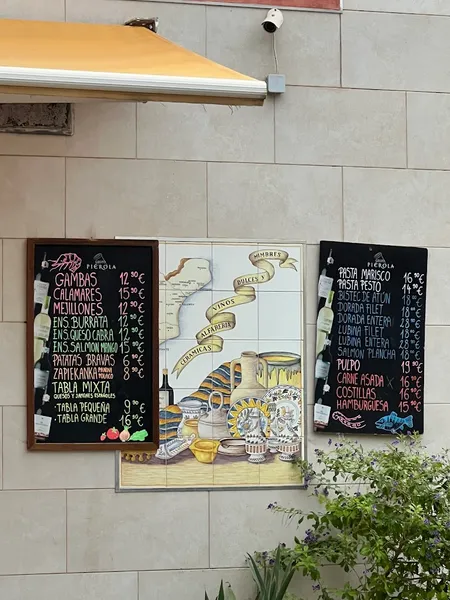 PIÉROLA
GAMBAS 12'50 €
CALAMARES 15'50 €
MEJILLONES 12'50 €
ENS. BURRATA 12'50 €
ENS. QUESO CABRA 12'50 €
ENS. SALMON MANGO 15'50 €
PATATAS BRAVAS 8'50 €
ZAPIEKANKA 8'50 €
TABLA MIXTA
QUESOS Y JAMONES ESPAÑOLES
· TABLA PEQUEÑA 9'90 €
· TABLA GRANDE 16'90 €
MIMBRES
DULCES Y
VINOS
ALFABERIA
CERAMICAS
PIÉROLA
PASTA MARISCO 16'90 €
PASTA PESTO 14'90 €
BISTEC DE ATÚN
DORADA FILET
DORADA ENTERA
LUBINA FILET
LUBINA ENTERA
SALMON PLANCHA
PULPO 19'90 €
CARNE ASADA 16'90 €
COSTILLAS 16'90 €
HAMBURGUESA 15'90 €